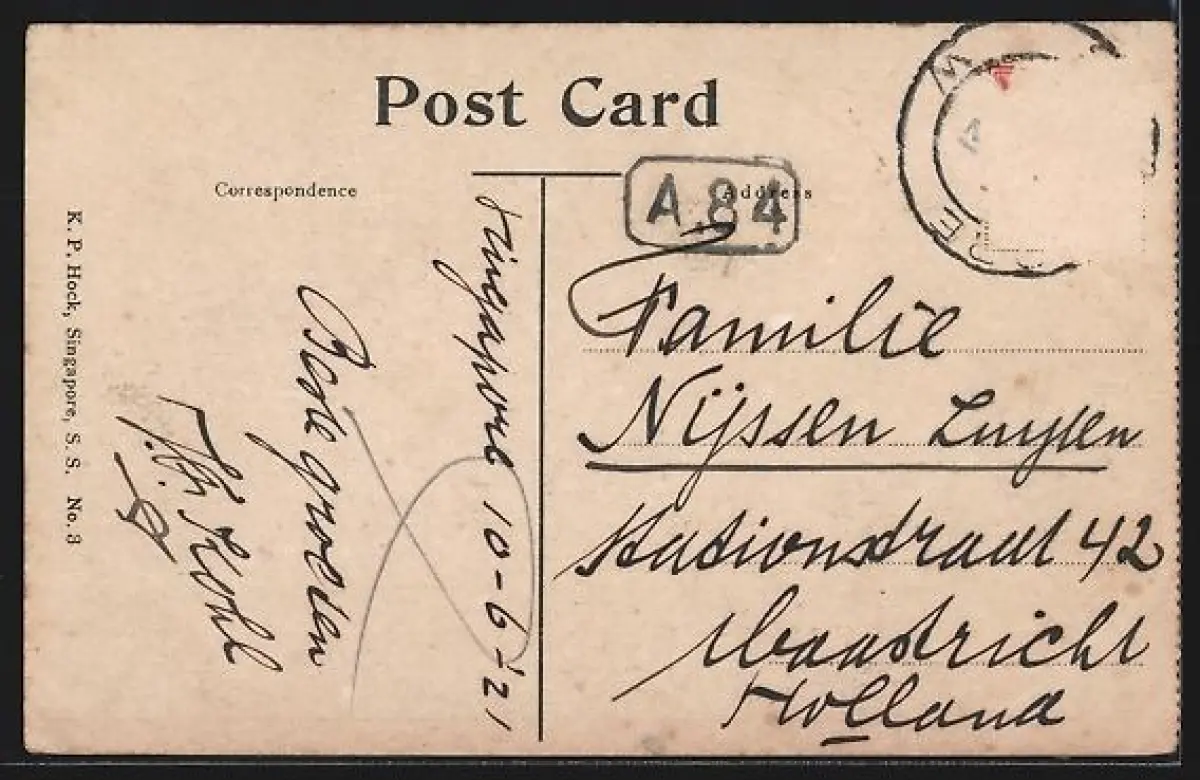 Post Card
Correspondence
Address
A.84
K. P. Hock, Singapore, S. S. No. 3
Singapore 10-6-'21
groeten
Th. Kohl
Familie
Nijssen Luyten
Stationstraat 42
Maastricht
Holland